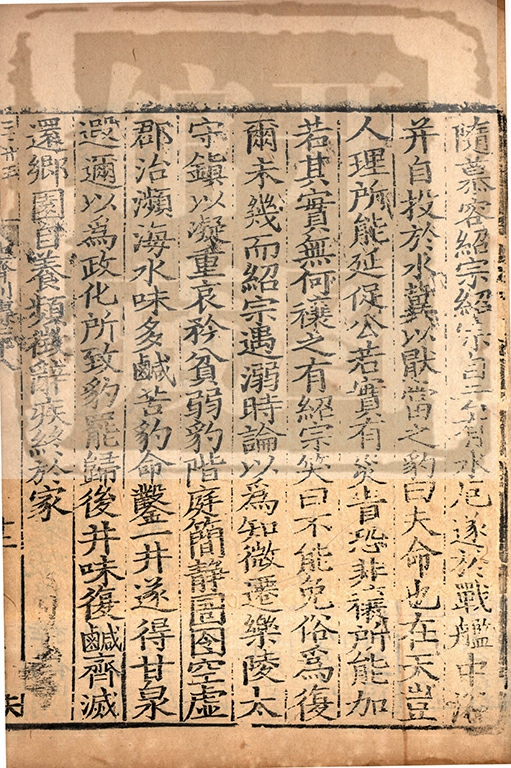 隨慕容紹宗紹宗自云有水厄遂於戰艦中浴
并自投於水冀以厭當之豹曰夫命也在天豈
人理所能延促公若實有災眚恐非禳所能加
若其實無何禳之有紹宗笑曰不能免俗為復
爾未幾而紹宗遇溺時論以為知微遷樂陵太
守鎮以凝重哀矜貧弱豹階庭簡靜圄囹空虛
郡治瀕海水味多鹹苦豹命鑿一井遂得甘泉
遐邇以為政化所致豹罷歸後井味復鹹齊滅
還鄉園自養頻徵辭疾終於家